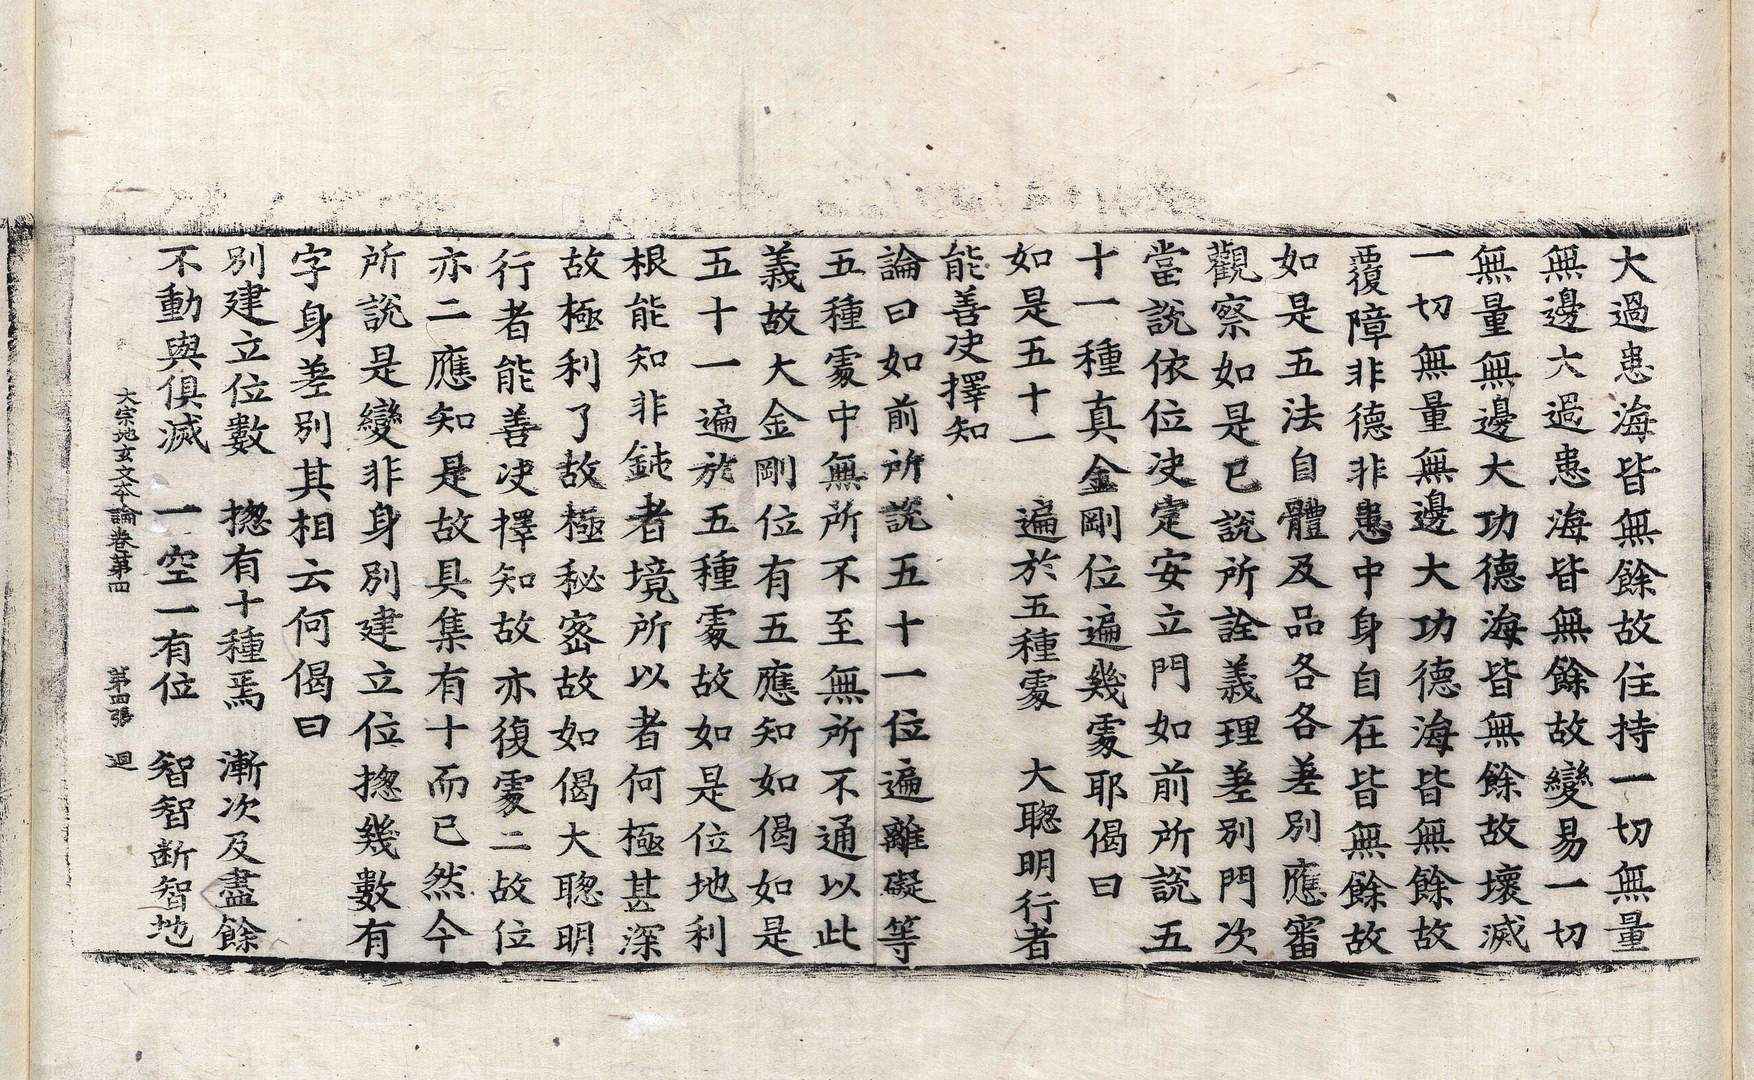 大過患海皆無餘故住持一切無量
無邊大過患海皆無餘故變易一切
無量無邊大功德海皆無餘故壞滅
一切無量無邊大功德海皆無餘故
覆障非德非患中身自在皆無餘故
如是五法自體及品各各差別應審
觀察如是已說所詮義理差別門次
當說依位决定安立門如前所說五
十一種真金剛位遍幾處耶偈曰
如是五十一　遍於五種處　大聦明行者
能善决擇知
論曰如前所說五十一位遍離礙等
五種處中無所不至無所不通以此
義故大金剛位有五應知如偈如是
五十一遍於五種處故如是位地利
根能知非鈍者境所以者何極甚深
故極利了故極秘密故如偈大聦明
行者能善决擇知故亦復處二故位
亦二應知是故具集有十而已然今
所說是變非身別建立位揔幾數有
字身差別其相云何偈曰
別建立位數　揔有十種焉　漸次及盡餘
不動與俱滅　一空一有位　智智断智地
大宗地玄文本論卷第四　第四張　迴